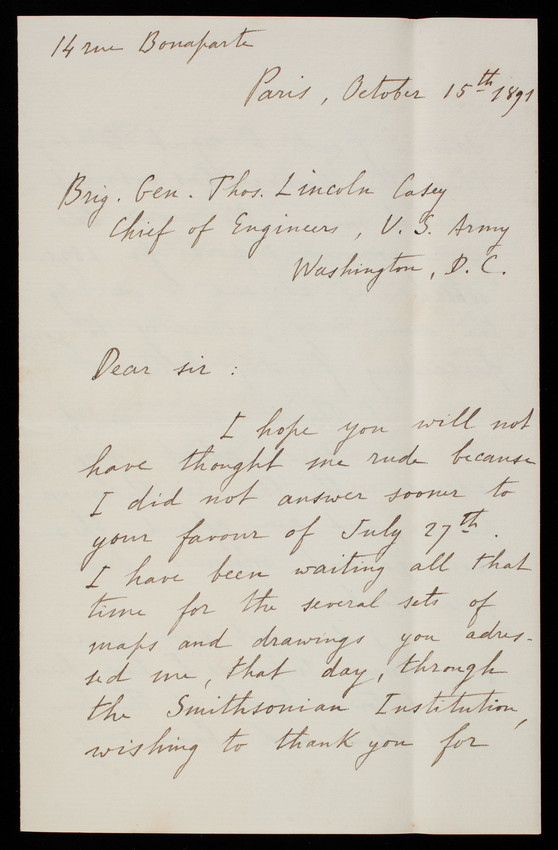 14 rue Bonaparte
Paris, October 15th 1891
Brig. Gen. Thos. Lincoln Casey
Chief of Engineers, U. S. Army
Washington, D. C.
Dear sir :
I hope you will not
have thought me rude because
I did not answer sooner to
your favour of July 27th.
I have been waiting all that
time for the several sets of
maps and drawings you adres-
sed me, that day, through
the Smithsonian Institution,
wishing to thank you for